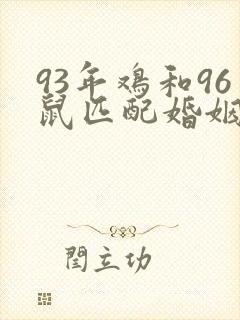 93年鸡和96
鼠匹配婚姻
閏立功